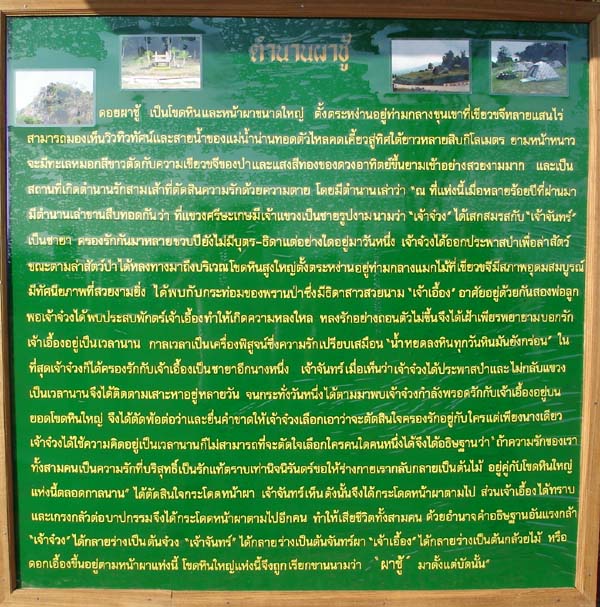 ตำนานผาชู้
ดอยผาชู้ เป็นโขดหินและหน้าผาขนาดใหญ่ ตั้งตระหง่านอยู่ท่ามกลางขุนเขาที่เขียวขจีหลายแสนไร่
สามารถมองเห็นวิวทิวทัศน์และสายน้ำของแม่น้ำน่านทอดตัวไหลคดเคี้ยวสู่ทิศใต้ยาวหลายสิบกิโลเมตร ยามหน้าหนาว
จะมีทะเลหมอกสีขาวตัดกับความเขียวขจีของป่าและแสงสีทองของดวงอาทิตย์ขึ้นยามเช้าอย่างสวยงามมาก และเป็น
สถานที่เกิดตำนานรักสามเส้าที่ตัดสินความรักด้วยความตาย โดยมีตำนานเล่าว่า "ณ ที่แห่งนี้เมื่อหลายร้อยปีที่ผ่านมา
มีตำนานเล่าขานสืบทอดกันว่า ที่แขวงศรีษะเกษมีเจ้าแขวงเป็นชายรูปงามนามว่า "เจ้าจ๋วง" ได้เสกสมรสกับ "เจ้าจันทร์"
เป็นชายา ครองรักกันมาหลายขวบปียังไม่มีบุตร-ธิดาแต่อย่างใดอยู่มาวันหนึ่ง เจ้าจ๋วงได้ออกประพาสป่าเพื่อล่าสัตว์
ขณะตามล่าสัตว์ป่าได้หลงทางมาถึงบริเวณโขดหินสูงใหญ่ตั้งตระหง่านอยู่ท่ามกลางแมกไม้ที่เขียวขจีมีสภาพอุดมสมบูรณ์
มีทัศนียภาพที่สวยงามยิ่ง ได้พบกับกระท่อมของพรานป่าซึ่งมีธิดาสาวสวยนาม "เจ้าเอื้อง" อาศัยอยู่ด้วยกันสองพ่อลูก
พอเจ้าจ๋วงได้พบประสบพักตร์เจ้าเอื้องทำให้เกิดความหลงใหล หลงรักอย่างถอนตัวไม่ขึ้นจึงได้เฝ้าเพียรพยายามบอกรัก
เจ้าเอื้องอยู่เป็นเวลานาน กาลเวลาเป็นเครื่องพิสูจน์ซึ่งความรักเปรียบเสมือน "น้ำหยดลงหินทุกวันหินมันยังกร่อน" ใน
ที่สุดเจ้าจ๋วงก็ได้ครองรักกับเจ้าเอื้องเป็นชายาอีกนางหนึ่ง เจ้าจันทร์เมื่อเห็นว่าเจ้าจ๋วงได้ประพาสป่าและไม่กลับแขวง
เป็นเวลานานจึงได้ติดตามเสาะหาอยู่หลายวัน จนกระทั่งวันหนึ่งได้ตามมาพบเจ้าจ๋วงกำลังพรอดรักกับเจ้าเอื้องอยู่บน
ยอดโขดหินใหญ่ จึงได้ตัดพ้อต่อว่าและยื่นคำขาดให้เจ้าจ๋วงเลือกเอาว่าจะตัดสินใจครองรักอยู่กับใครแต่เพียงนางเดียว
เจ้าจ๋วงได้ใช้ความคิดอยู่เป็นเวลานานก็ไม่สามารถที่จะตัดใจเลือกใครคนใดคนหนึ่งได้จึงได้อธิษฐานว่า "ถ้าความรักของเรา
ทั้งสามคนเป็นความรักที่บริสุทธิ์เป็นรักแท้ตราบเท่านิจนิรันดร์ขอให้ร่างกายเรากลับกลายเป็นต้นไม้ อยู่คู่กับโขดหินใหญ่
แห่งนี้ตลอดกาลนาน" ได้ตัดสินใจกระโดดหน้าผา เจ้าจันทร์เห็นดังนั้นจึงได้กระโดดหน้าผาตามไป ส่วนเจ้าเอื้องได้ทราบ
และเกรงกลัวต่อบาปกรรมจึงได้กระโดดหน้าผาตามไปอีกคน ทำให้เสียชีวิตทั้งสามคน ด้วยอำนาจคำอธิษฐานอันแรงกล้า
"เจ้าจ๋วง" ได้กลายร่างเป็นต้นจ๋วง "เจ้าจันทร์" ได้กลายร่างเป็นต้นจันทร์ผา "เจ้าเอื้อง" ได้กลายร่างเป็นต้นกล้วยไม้ หรือ
ดอกเอื้องขึ้นอยู่ตามหน้าผาแห่งนี้ โขดหินใหญ่แห่งนี้จึงถูกเรียกขานนามว่า "ผาชู้" มาตั้งแต่บัดนั้น"